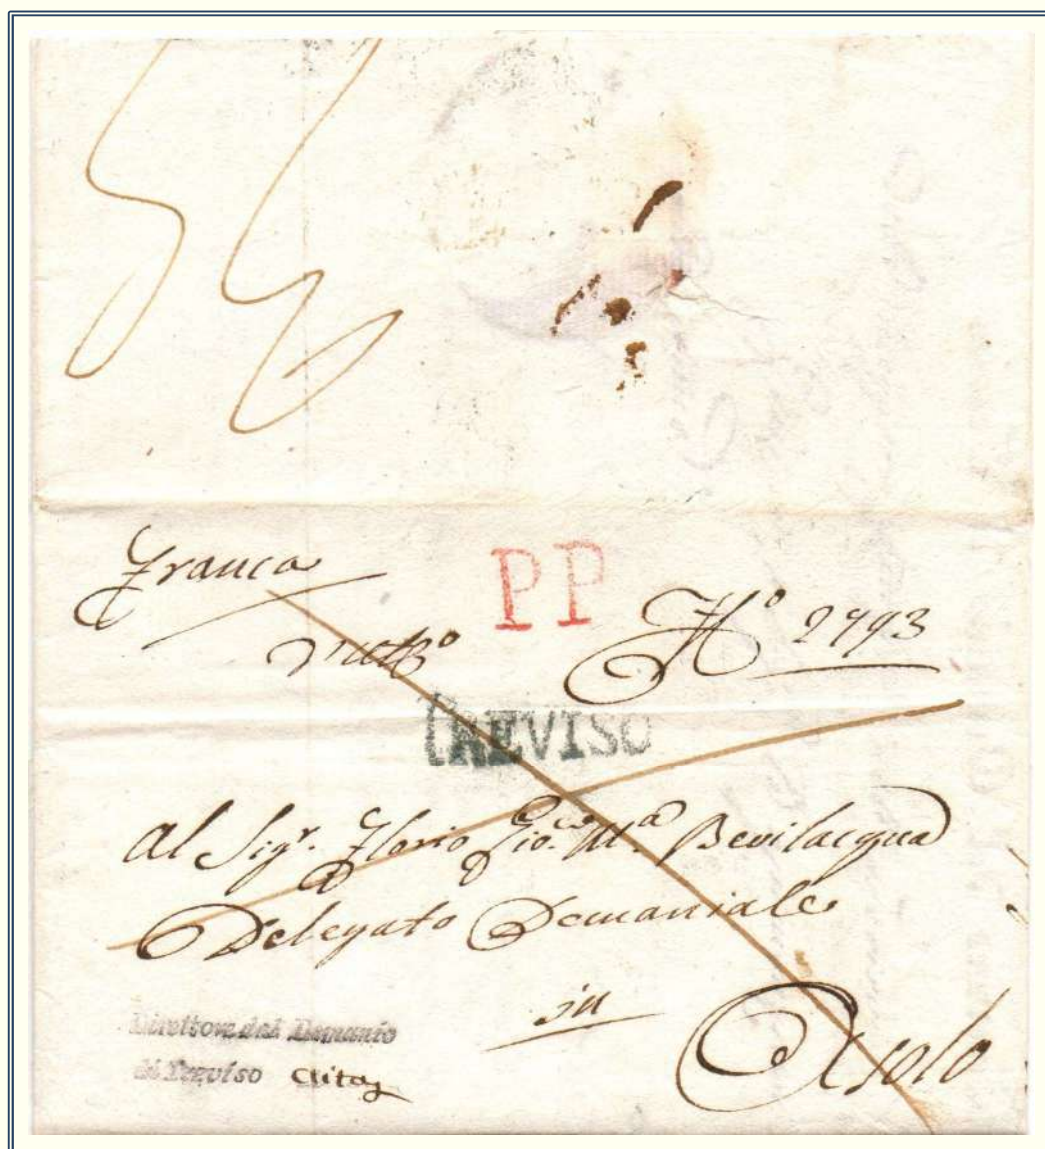 Franca
PP
N.º 2793
TREVISO
Al Sigr. Florio Gio. Ma. Bevilacqua
Delegato Demaniale
in
Asolo
Direttore del Demanio
di Treviso